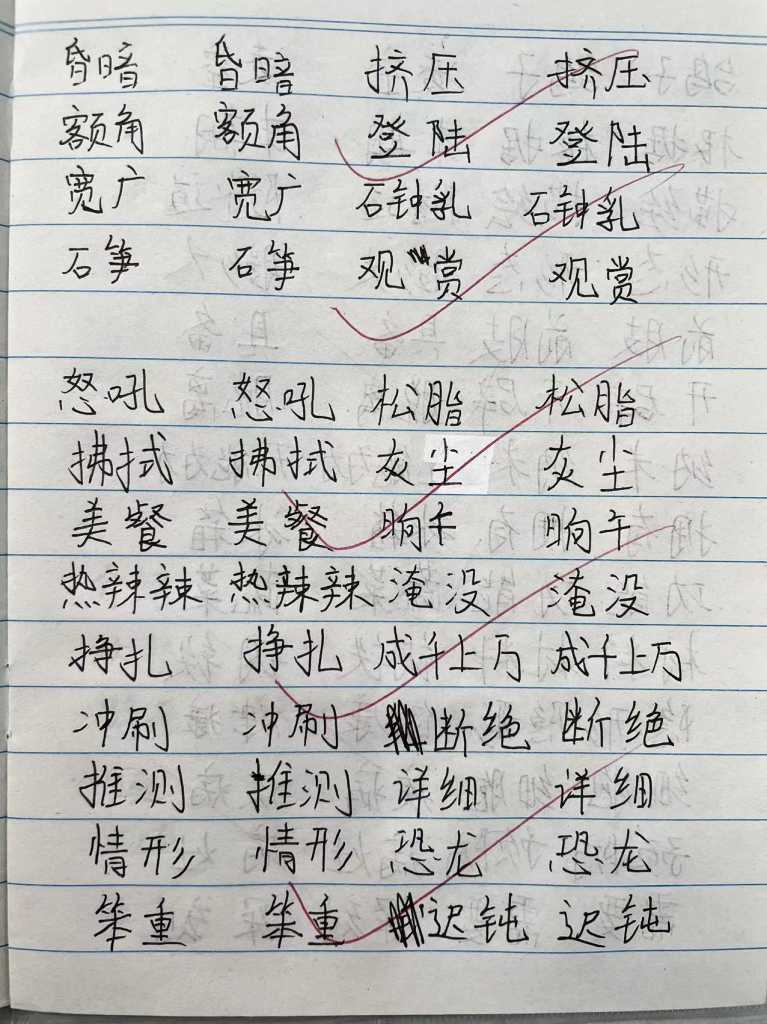 昏暗 昏暗 挤压 挤压
额角 额角 登陆 登陆
宽广 宽广 石钟乳 石钟乳
石笋 石笋 观赏 观赏
怒吼 怒吼 松脂 松脂
拂拭 拂拭 灰尘 灰尘
美餐 美餐 晌午 晌午
热辣辣 热辣辣 淹没 淹没
挣扎 挣扎 成千上万 成千上万
冲刷 冲刷 断绝 断绝
推测 推测 详细 详细
情形 情形 恐龙 恐龙
笨重 笨重 迟钝 迟钝